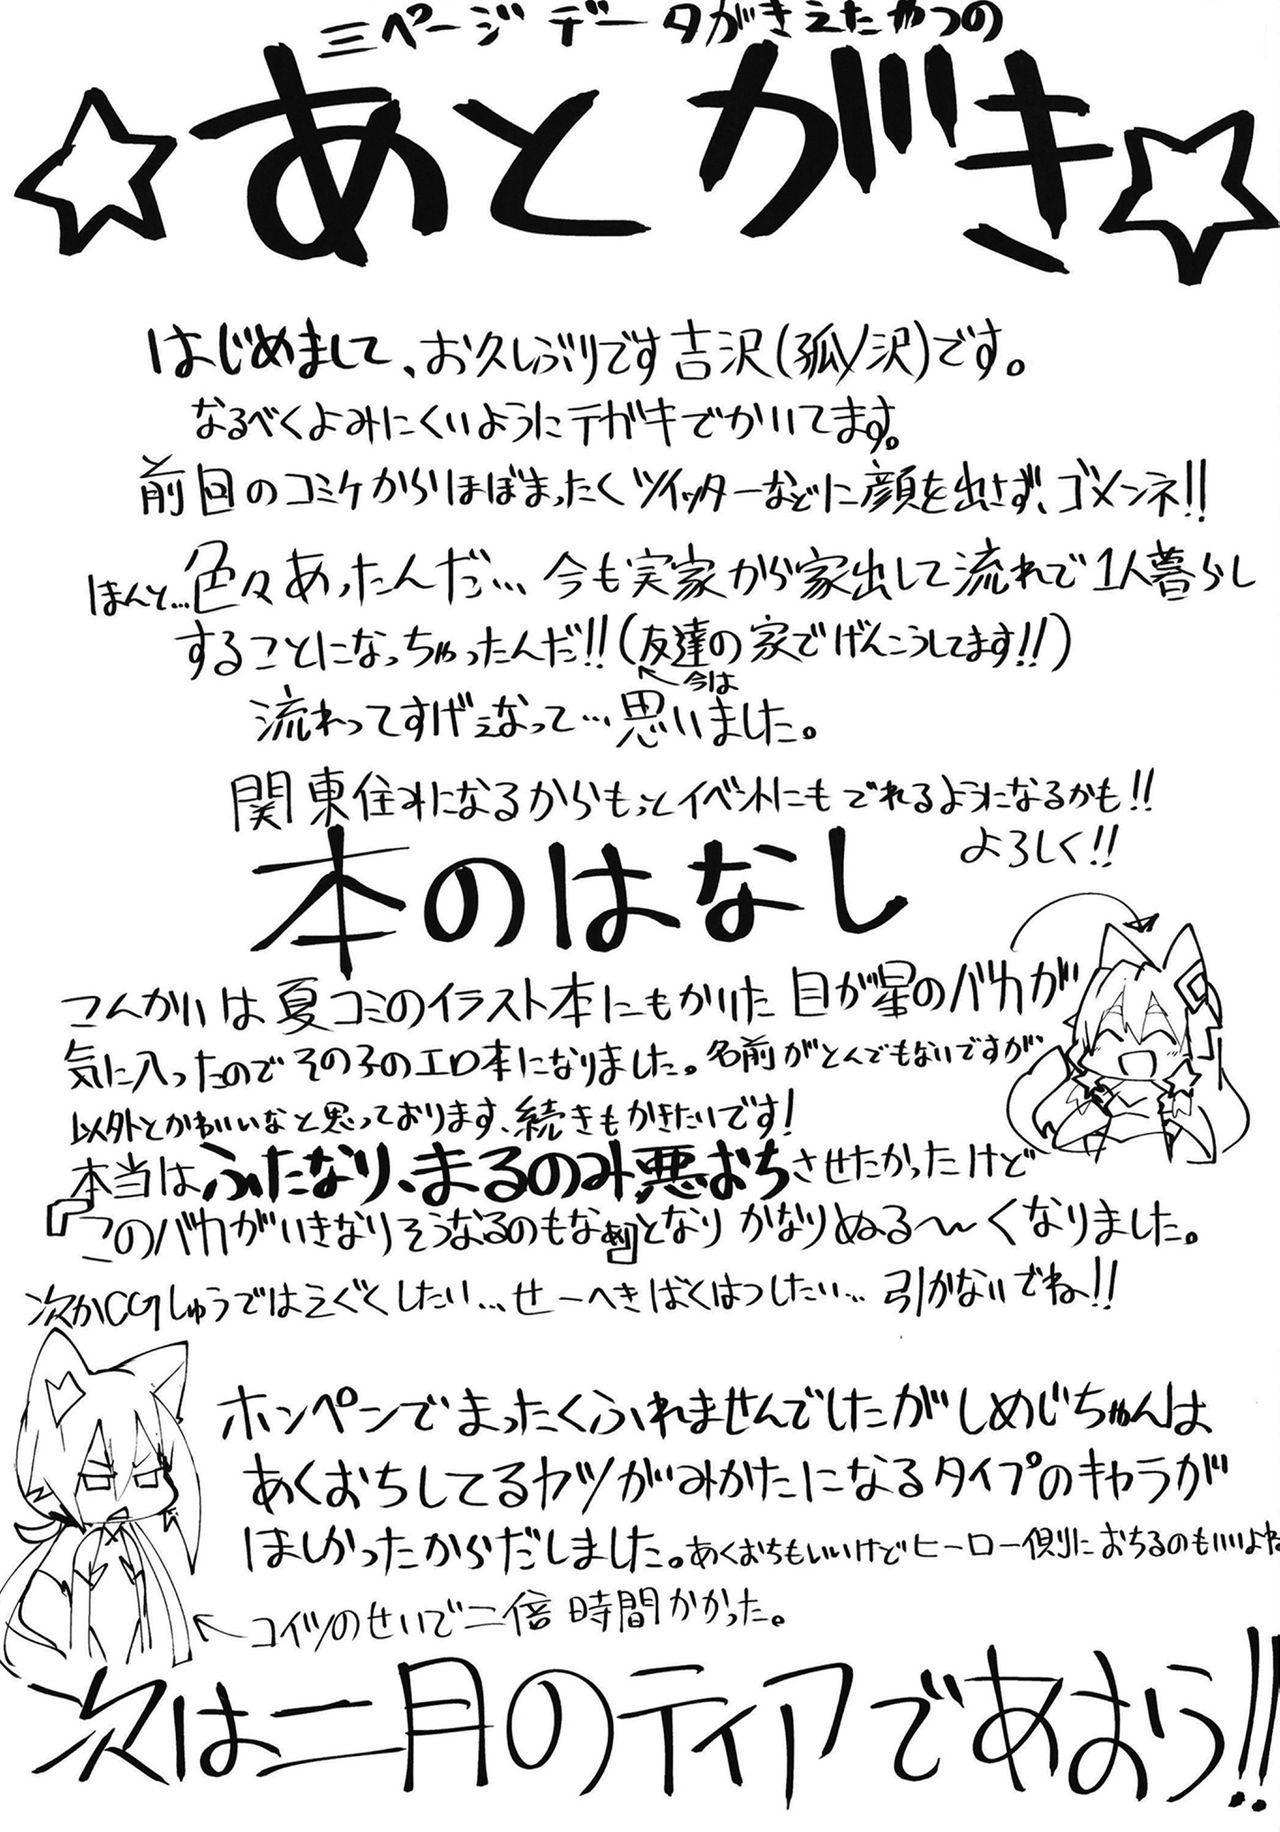 三ページデータがきえたやつの
☆あとがき☆
はじめまして、お久しぶりです吉沢(狐ノ沢)です。
なるべくよみにくいようにテガキでかいてます。
前回のコミケからほぼまったくツイッターなどに顔を出さず、ゴメンネ!!
ほんと…色々あったんだ…今も実家から家出して流れで1人暮らし
することになっちゃったんだ!!(友達の家でげんこうしてます!!)
今は
流れってすげぇなって…思いました。
関東住みになるからもっとイベントにもでれるようになるかも!!
よろしく!!
本のはなし
こんかいは夏コミのイラスト本にもかいた目が星のバカが
気に入ったのでその子のエロ本になりました。名前がとんでもないですが
以外とかわいいなと思っております、続きもかきたいです!
本当はふたなり、まるのみ悪おちさせたかったけど
『このバカがいきなりそうなるのもなぁ』となりかなりぬる〜くなりました。
次かCGしゅうではえぐくしたい…せーへきばくはつしたい…引かないでね!!
ホンペンでまったくふれませんでしたがしめじちゃんは
あくおちしてるヤツがみかたになるタイプのキャラが
ほしかったからだしました。あくおちもいいけどヒーロー側におちるのもいいよね
コイツのせいで二倍時間かかった。
次は二月のティアであおう!!